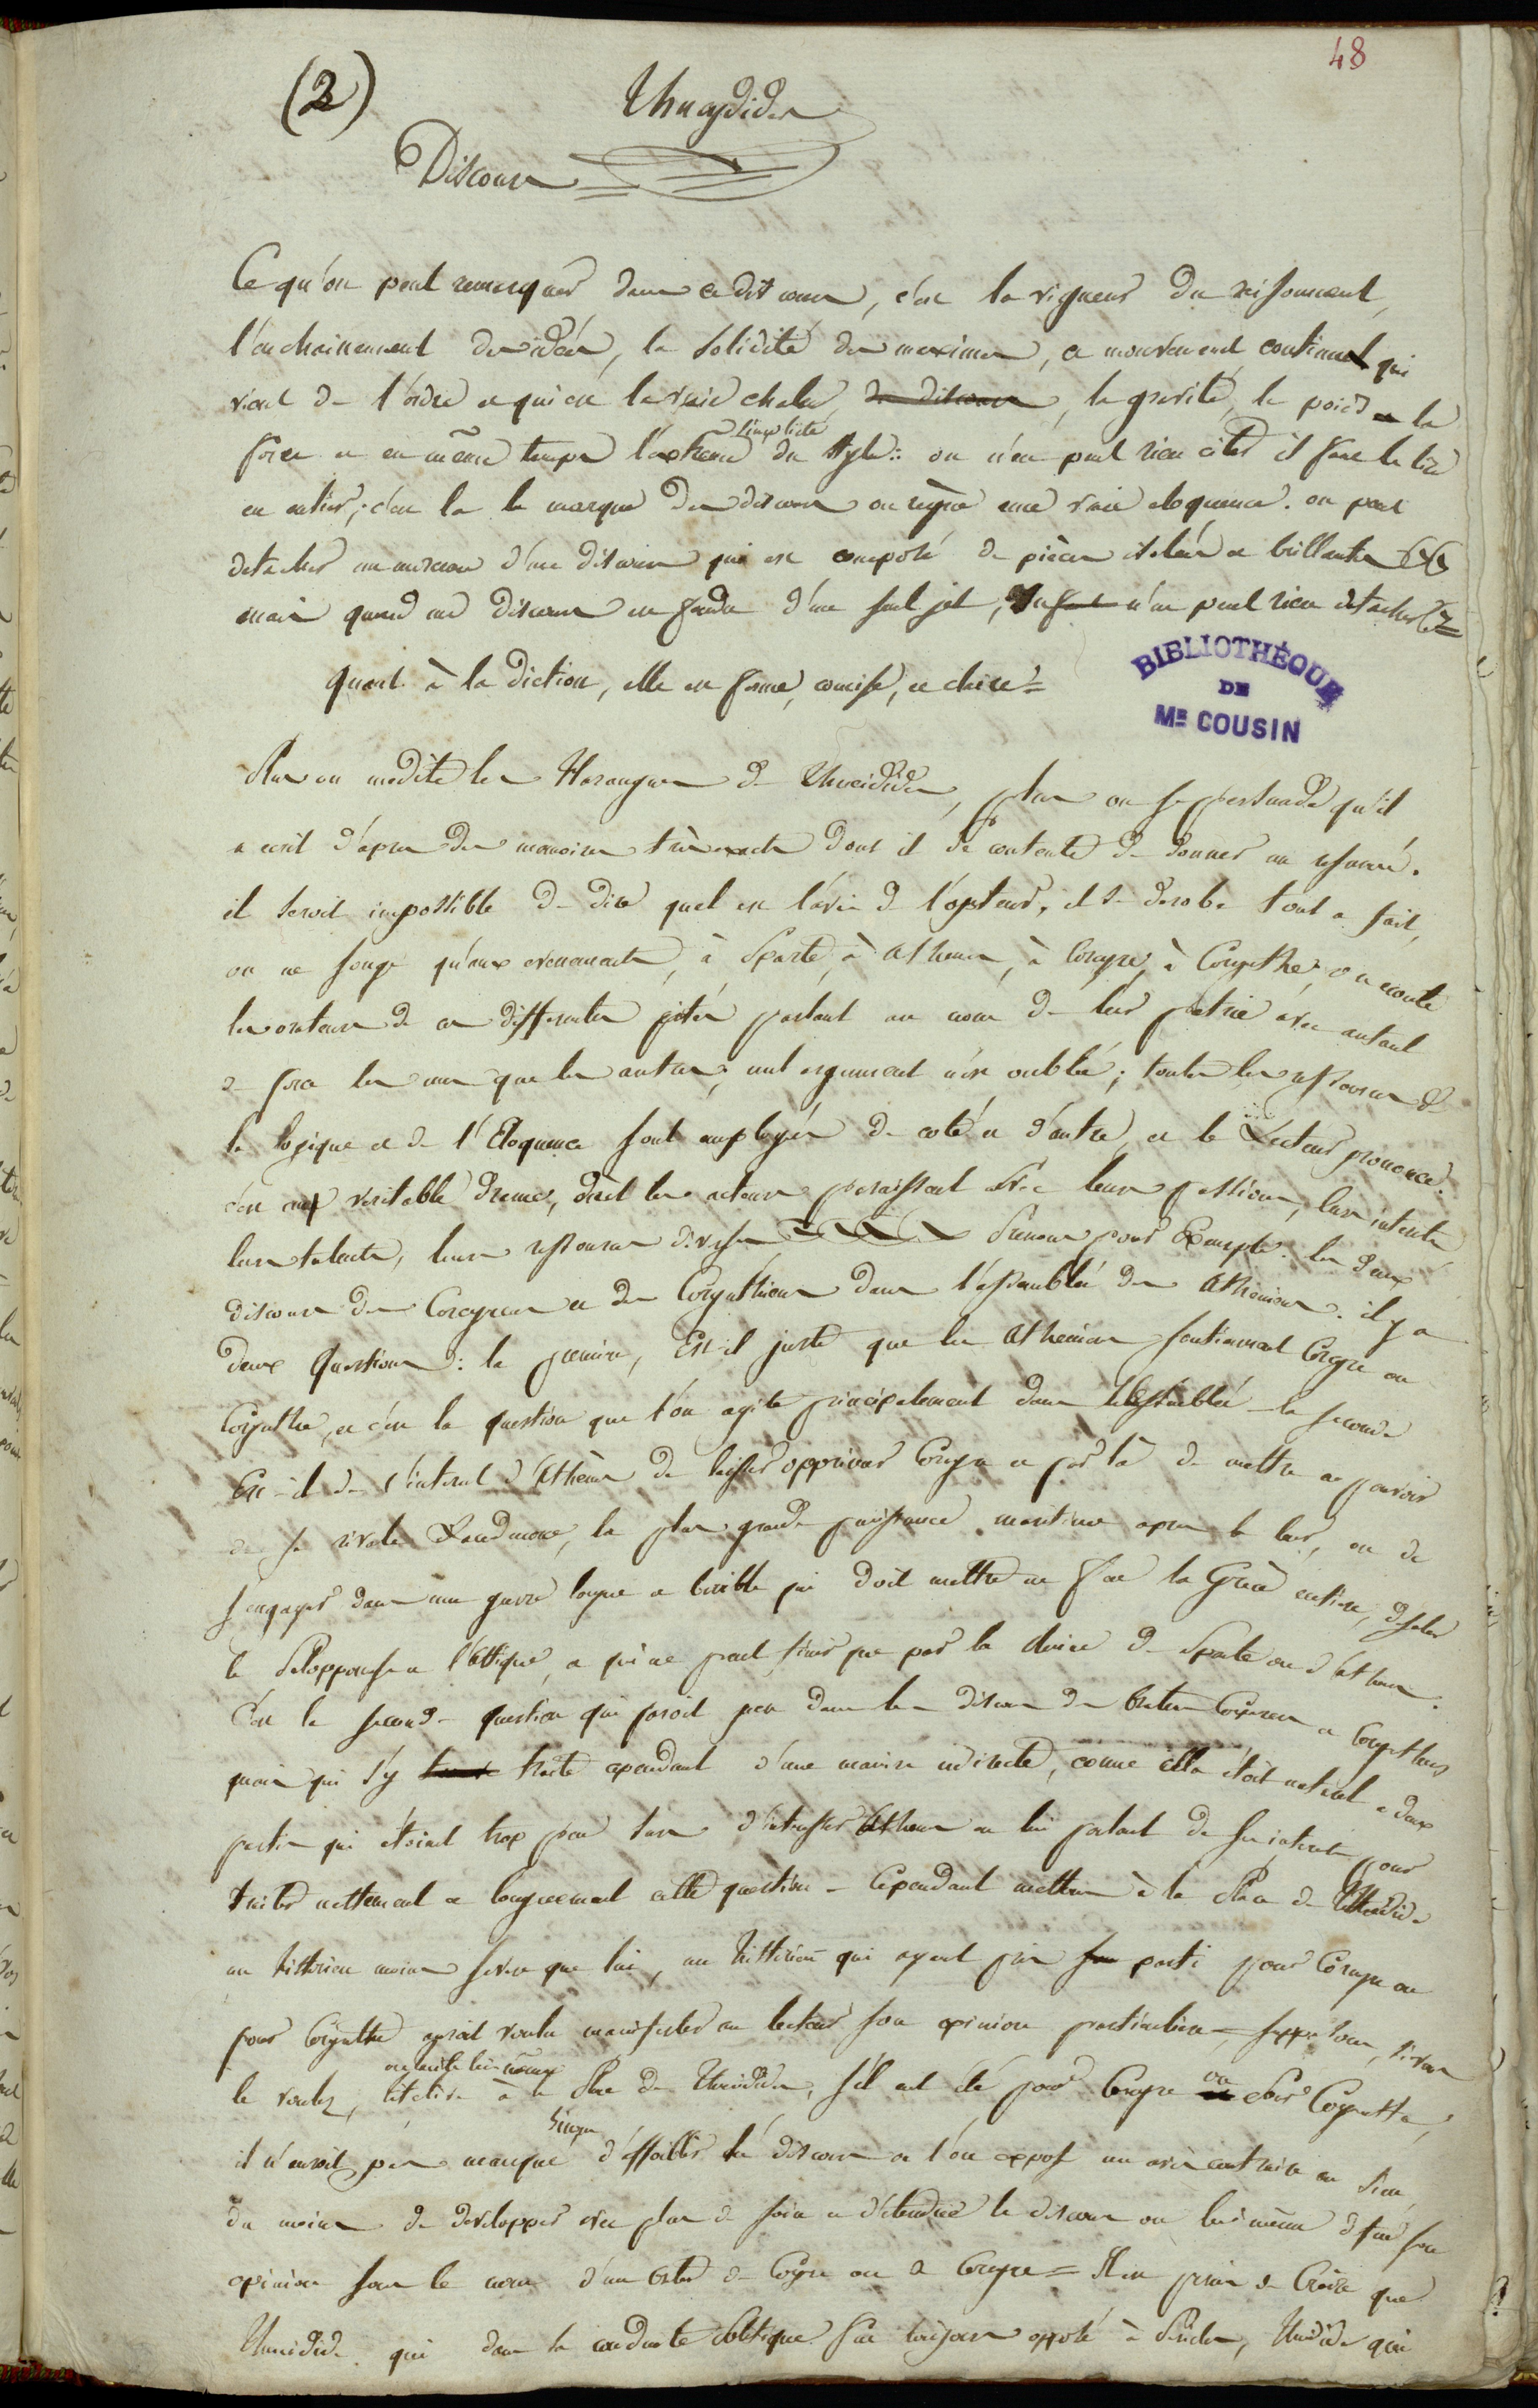 48
(2)
Thucydides
Discours
Ce qu'on peut remarquer dans ce discours, c'est la vigueur du raisonnement,
l'enchainement des idées, la solidité des maximes, ce mouvement continuel qui
vient de l'ordre et qui est la vraie chaleur du discours, la gravité, le poids et la
simplicité
force et en même temps l'extreme du style: on n'en peut rien citer il faut le lire
en entier; c'est la la marque des discours ou regne une vraie eloquence. on peut
detacher un morceau d'un discours qui est composé de pièces isolées et brillantes
mais quand un discours est fondu d'un seul jet, on n'en peut rien detacher =
quant à la diction, elle est ferme, concise, et claire =
BIBLIOTHÈQUE
DE
Mr COUSIN
Plus on medite les Harangues de Thucidide, plus on se persuade qu'il
a ecrit d'apres des memoires très exacts dont il se contente de donner un resumé.
il seroit impossible de dire quel est l'avis de l'auteur, il se derobe tout a fait,
on ne songe qu'aux evenements, à Sparte, à Athenes, à Corcyre, à Corynthe, on ecoute
les orateurs de ces differentes cités parlant au nom de leur patrie avec autant
de force les uns que les autres; nul argument n'est oublié; toutes les ressources de
la logique et de l'Eloquence sont employées de coté et d'autre, et le Lecteur prononce.
c'est un veritable drame, dont les acteurs paraissent avec leurs passions, leurs interets
leurs talents, leurs ressources diverses Prenons pour Exemple les deux
discours des Corcyreens et des Corynthiens dans l'assemblée des Atheniens. il y a
deux Questions: la premiere, Est-il juste que les Atheniens soutiennent Corcyre ou
Corynthe, et c'est la question que l'on agite principalement dans l'assemblée - la seconde
Est-il de l'interet d'Athènes de laisser opprimer Corcyre et par là de mettre au pouvoir
de sa rivale Lacedemone, la plus grande puissance maritime apres la leur, ou de
s'engager dans une guerre longue et terrible qui doit mettre en feu la Grèce entiere, desoler
le Peloponnese et l'Attique, et qui ne peut finir que par la ruine de Sparte ou d'Athenes.
C'est la seconde question qui paroit peu dans les discours des Orateurs Corcyreens et Corynthiens
mais qui s'y traite cependant d'une maniere indirecte, comme cela étoit naturel a deux
partis qui étoient trop peu surs d'interesser Athenes en lui parlant de ses interets pour
traiter nettement et longuement cette question - Cependant mettons à la Place de Thucidide
un historien moins severe que lui, un historien qui ayant pris parti pour Corcyre ou
pour Corynthe auroit voulu manifester au lecteur son opinion particuliere = supposons, si vous
le voulez, à la Place de Thucidide, s'il eut été pour Corcyre ou pour Corynthe,
il n'auroit pas manqué d'affoiblir le discours où l'on expose un avis contraire au sien
du moins de developper avec plus de soin et d'étendue le discours ou lui même defend son
opinion sous le nom d'un Orateur de Corynthe ou de Corcyre = Il est permis de Croire que
Thucidide qui dans la conduite politique fut toujours opposé à Pericles, Thucidide qui